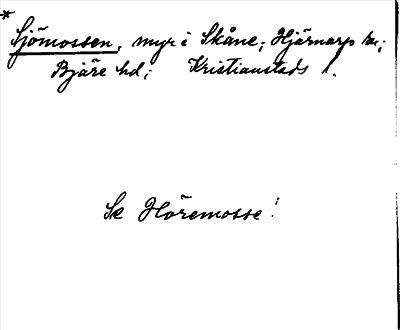 *
Sjömossen, myr i Skåne; Hjärnarp sn;
Bjäre hd; Kristianstads l.
Se Höremosse!